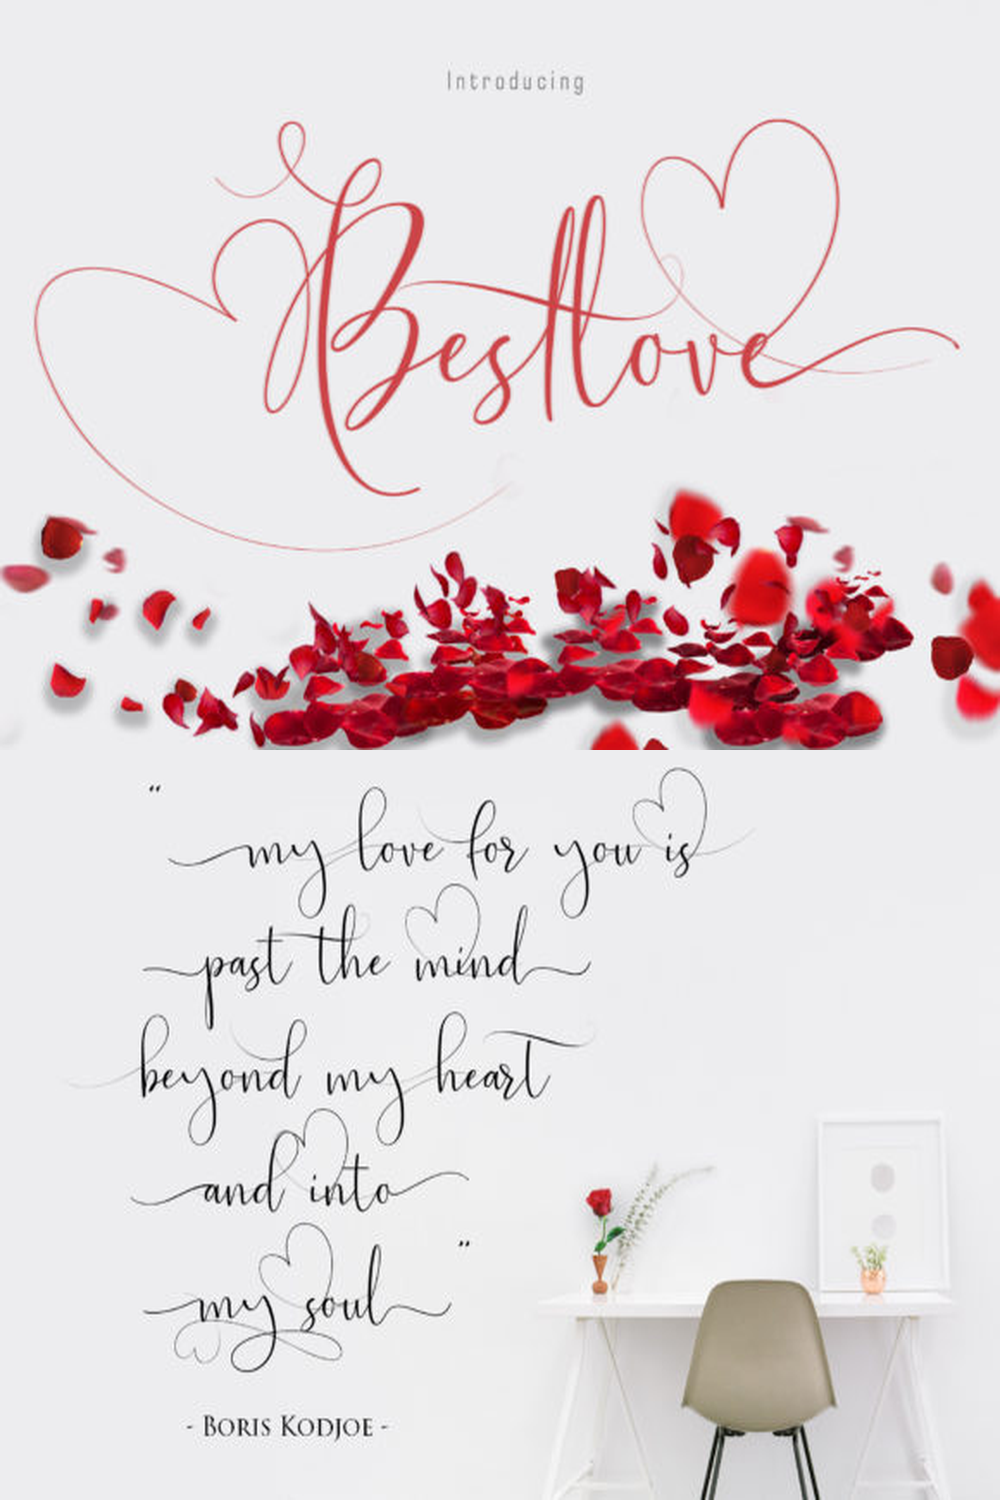 Introducing
Bestlove
“
my love for you is
past the mind
beyond my heart
and into
my soul ”
- Boris Kodjoe -